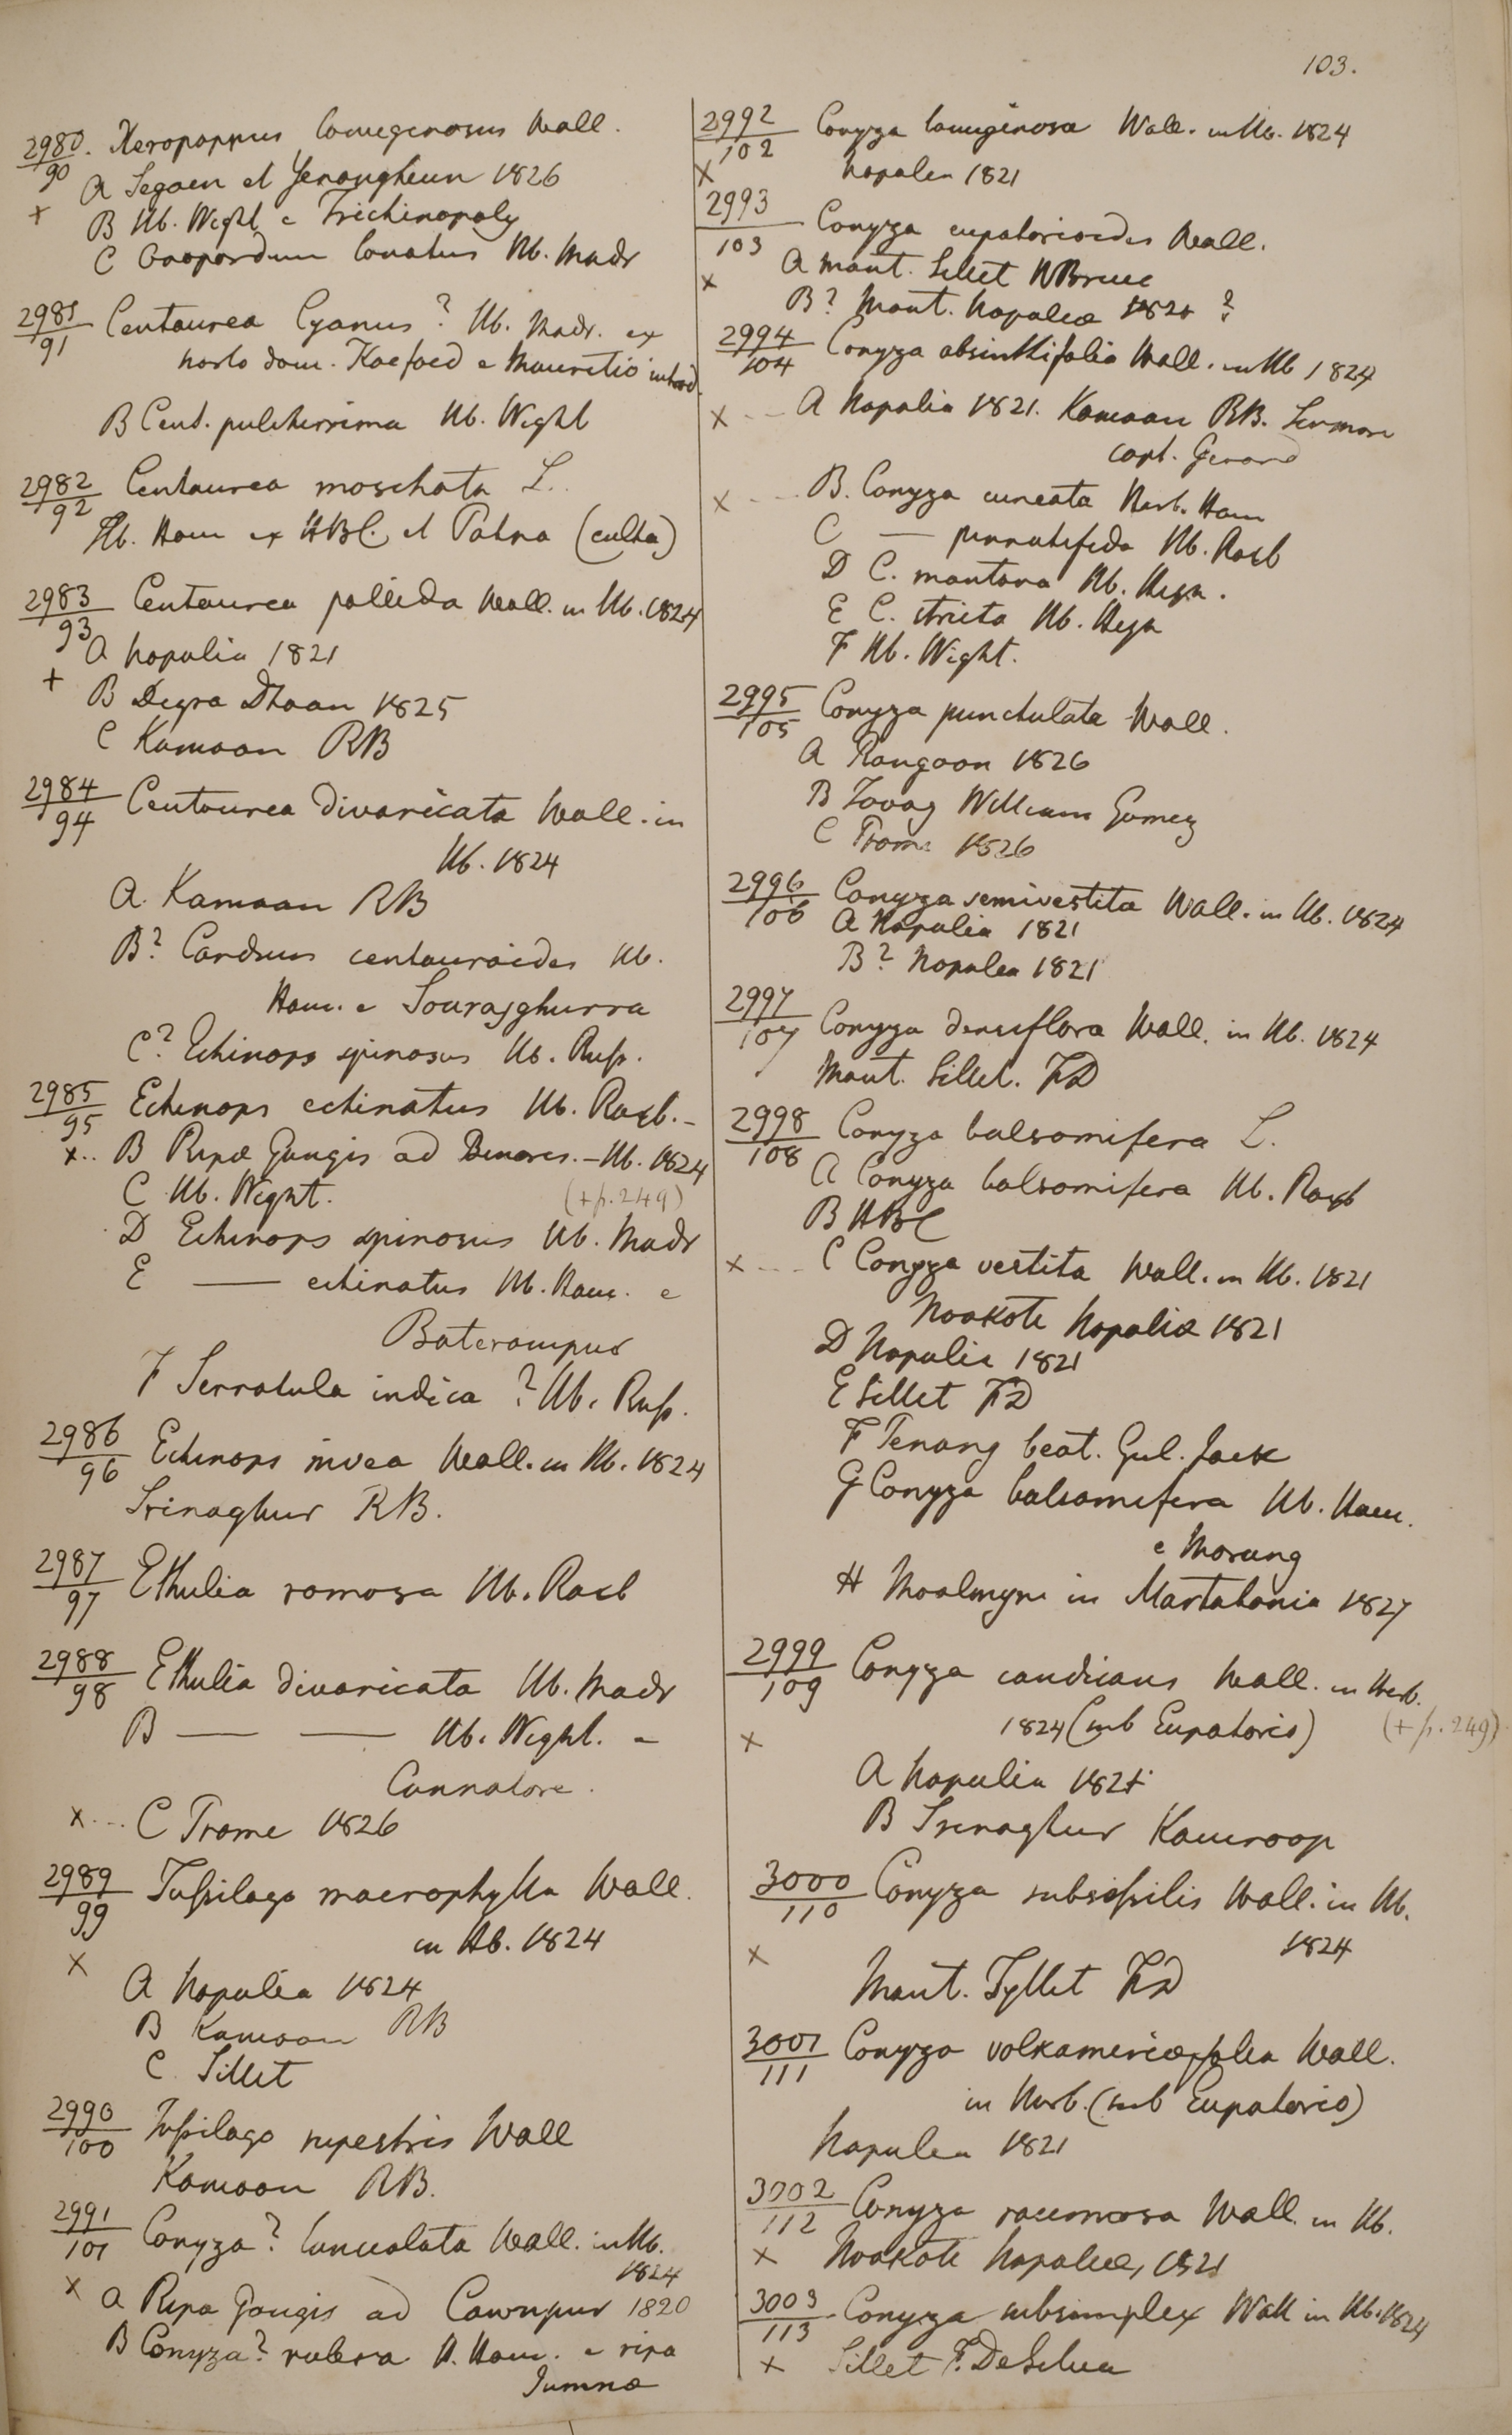 103.
2980/90. Xeropappus lanuginosus Wall.
A Segaen et Yenangheun 1826
+
B Hb. Wight e Trichinopoly
C Onopordum lanatus Hb. Madr
2981/91 Centaurea Cyanus? Hb. Madr. ex
horto dom. Koefoed e Mauretio introd.
B Cent. pulcherrima Hb. Wight
2982/92 Centaurea moschata L.
Hb. Ham ex HBC. et Patna (culta)
2983/93 Centaurea pallida Wall. in Hb. 1824
A Napalia 1821
+
B Degra Dhoon 1825
C Kamaon RB
2984/94 Centaurea divaricata Wall. in
Hb. 1824
A. Kamaon RB
B? Carduus centauroides Hb.
Ham. e Sourajghurra
C? Echinops spinosus Hb. Russ.
2985/95 Echinops echinatus Hb. Roxb. -
x.. B Ripa Gangis ad Benares. - Hb. 1824
C Hb. Wight.
(+p. 249)
D Echinops spinosus Hb. Madr
E — echinatus Hb. Ham. e
Baterampur
F Serratula indica? Hb. Russ.
2986/96 Echinops nivea Wall. in Hb. 1824
Srinaghur RB.
2987/97 Ethulia ramosa Hb. Roxb
2988/98 Ethulia divaricata Hb. Madr
B — — Hb. Wight. e
Cannatore.
x... C Prome 1826
2989/99 Tussilago macrophylla Wall.
in Hb. 1824
x
A Napalia 1824
B Kamaon RB
C Sillet
2990/100 Tussilago rupestris Wall
Kamaon RB.
2991/101 Conyza? lanceolata Wall. in Hb.
1824
x A Ripa Gangis ad Cawnpur 1820
B Conyza? rubera H. Ham. e ripa
Jumna
2992/102 Conyza lanuginosa Wall. in Hb. 1824
x Napalea 1821
2993/103 Conyza eupatorioides Wall.
A Mont. Sillet WBruce
x
B? Mont. Napalia 1821 ?
2994/104 Conyza absinthifolia Wall. in Hb 1824
x - - A Napalia 1821. Kamaon RB. Sirmore
capt. Gerard
x - - - B. Conyza cuneata Herb. Ham
C — pinnatifida Hb. Roxb
D C. montana Hb. Heyn.
E C. stricta Hb. Heyn
F Hb. Wight.
2995/105 Conyza punctulata Wall.
A Rangoon 1826
B Tavoy William Gomez
C Prome 1826
2996/106 Conyza semivestita Wall. in Hb. 1824
A Napalia 1821
B? Napalea 1821
2997/107 Conyza densiflora Wall. in Hb. 1824
Mont. Sillet. FD
2998/108 Conyza balsamifera L.
A Conyza balsamifera Hb. Roxb
B HBC
x - - - C Conyza vestita Wall. in Hb. 1821
Noakote Napalia 1821
D Napalia 1821
E Sillet FD
F Penang beat. Gul. Jack
G Conyza balsamifera Hb. Ham.
e Morung
H Moalmyne in Martabania 1827
2999/109 Conyza candicans Wall. in Herb.
1824 (sub Eupatorio)
(+p. 249)
x
A Napalia 1821
B Srinaghur Kamroop
3000/110 Conyza subsessilis Wall. in Hb.
1824
x
Mont. Syllet FD
3001/111 Conyza volkameriaefolia Wall.
in Herb. (sub Eupatorio)
Napalea 1821
3002/112 Conyza racemosa Wall. in Hb.
x Noakote Napaliæ, 1821
3003/113 Conyza subsimplex Wall in Hb. 1824
x Sillet F. De Silva